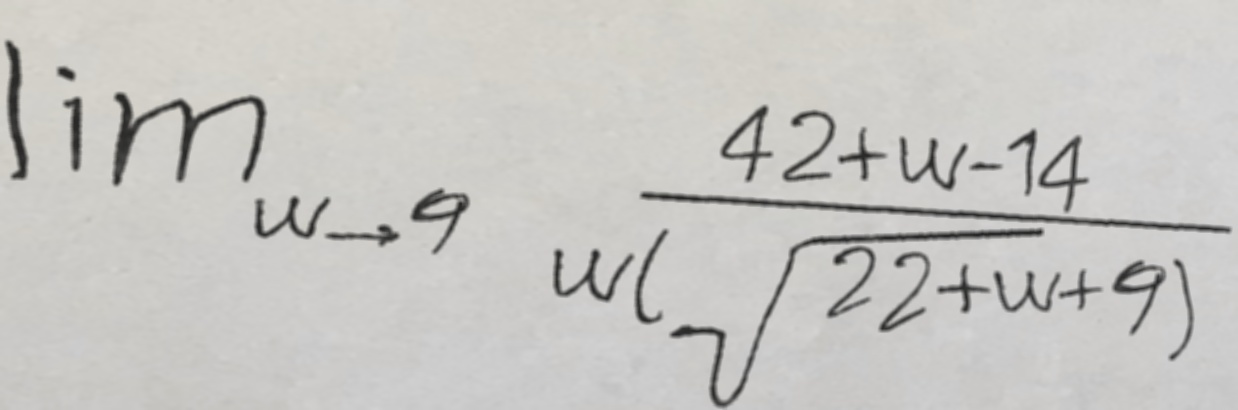 \lim_{w \to 9} \frac{42+w-14}{w(\sqrt{22+w}+9)}